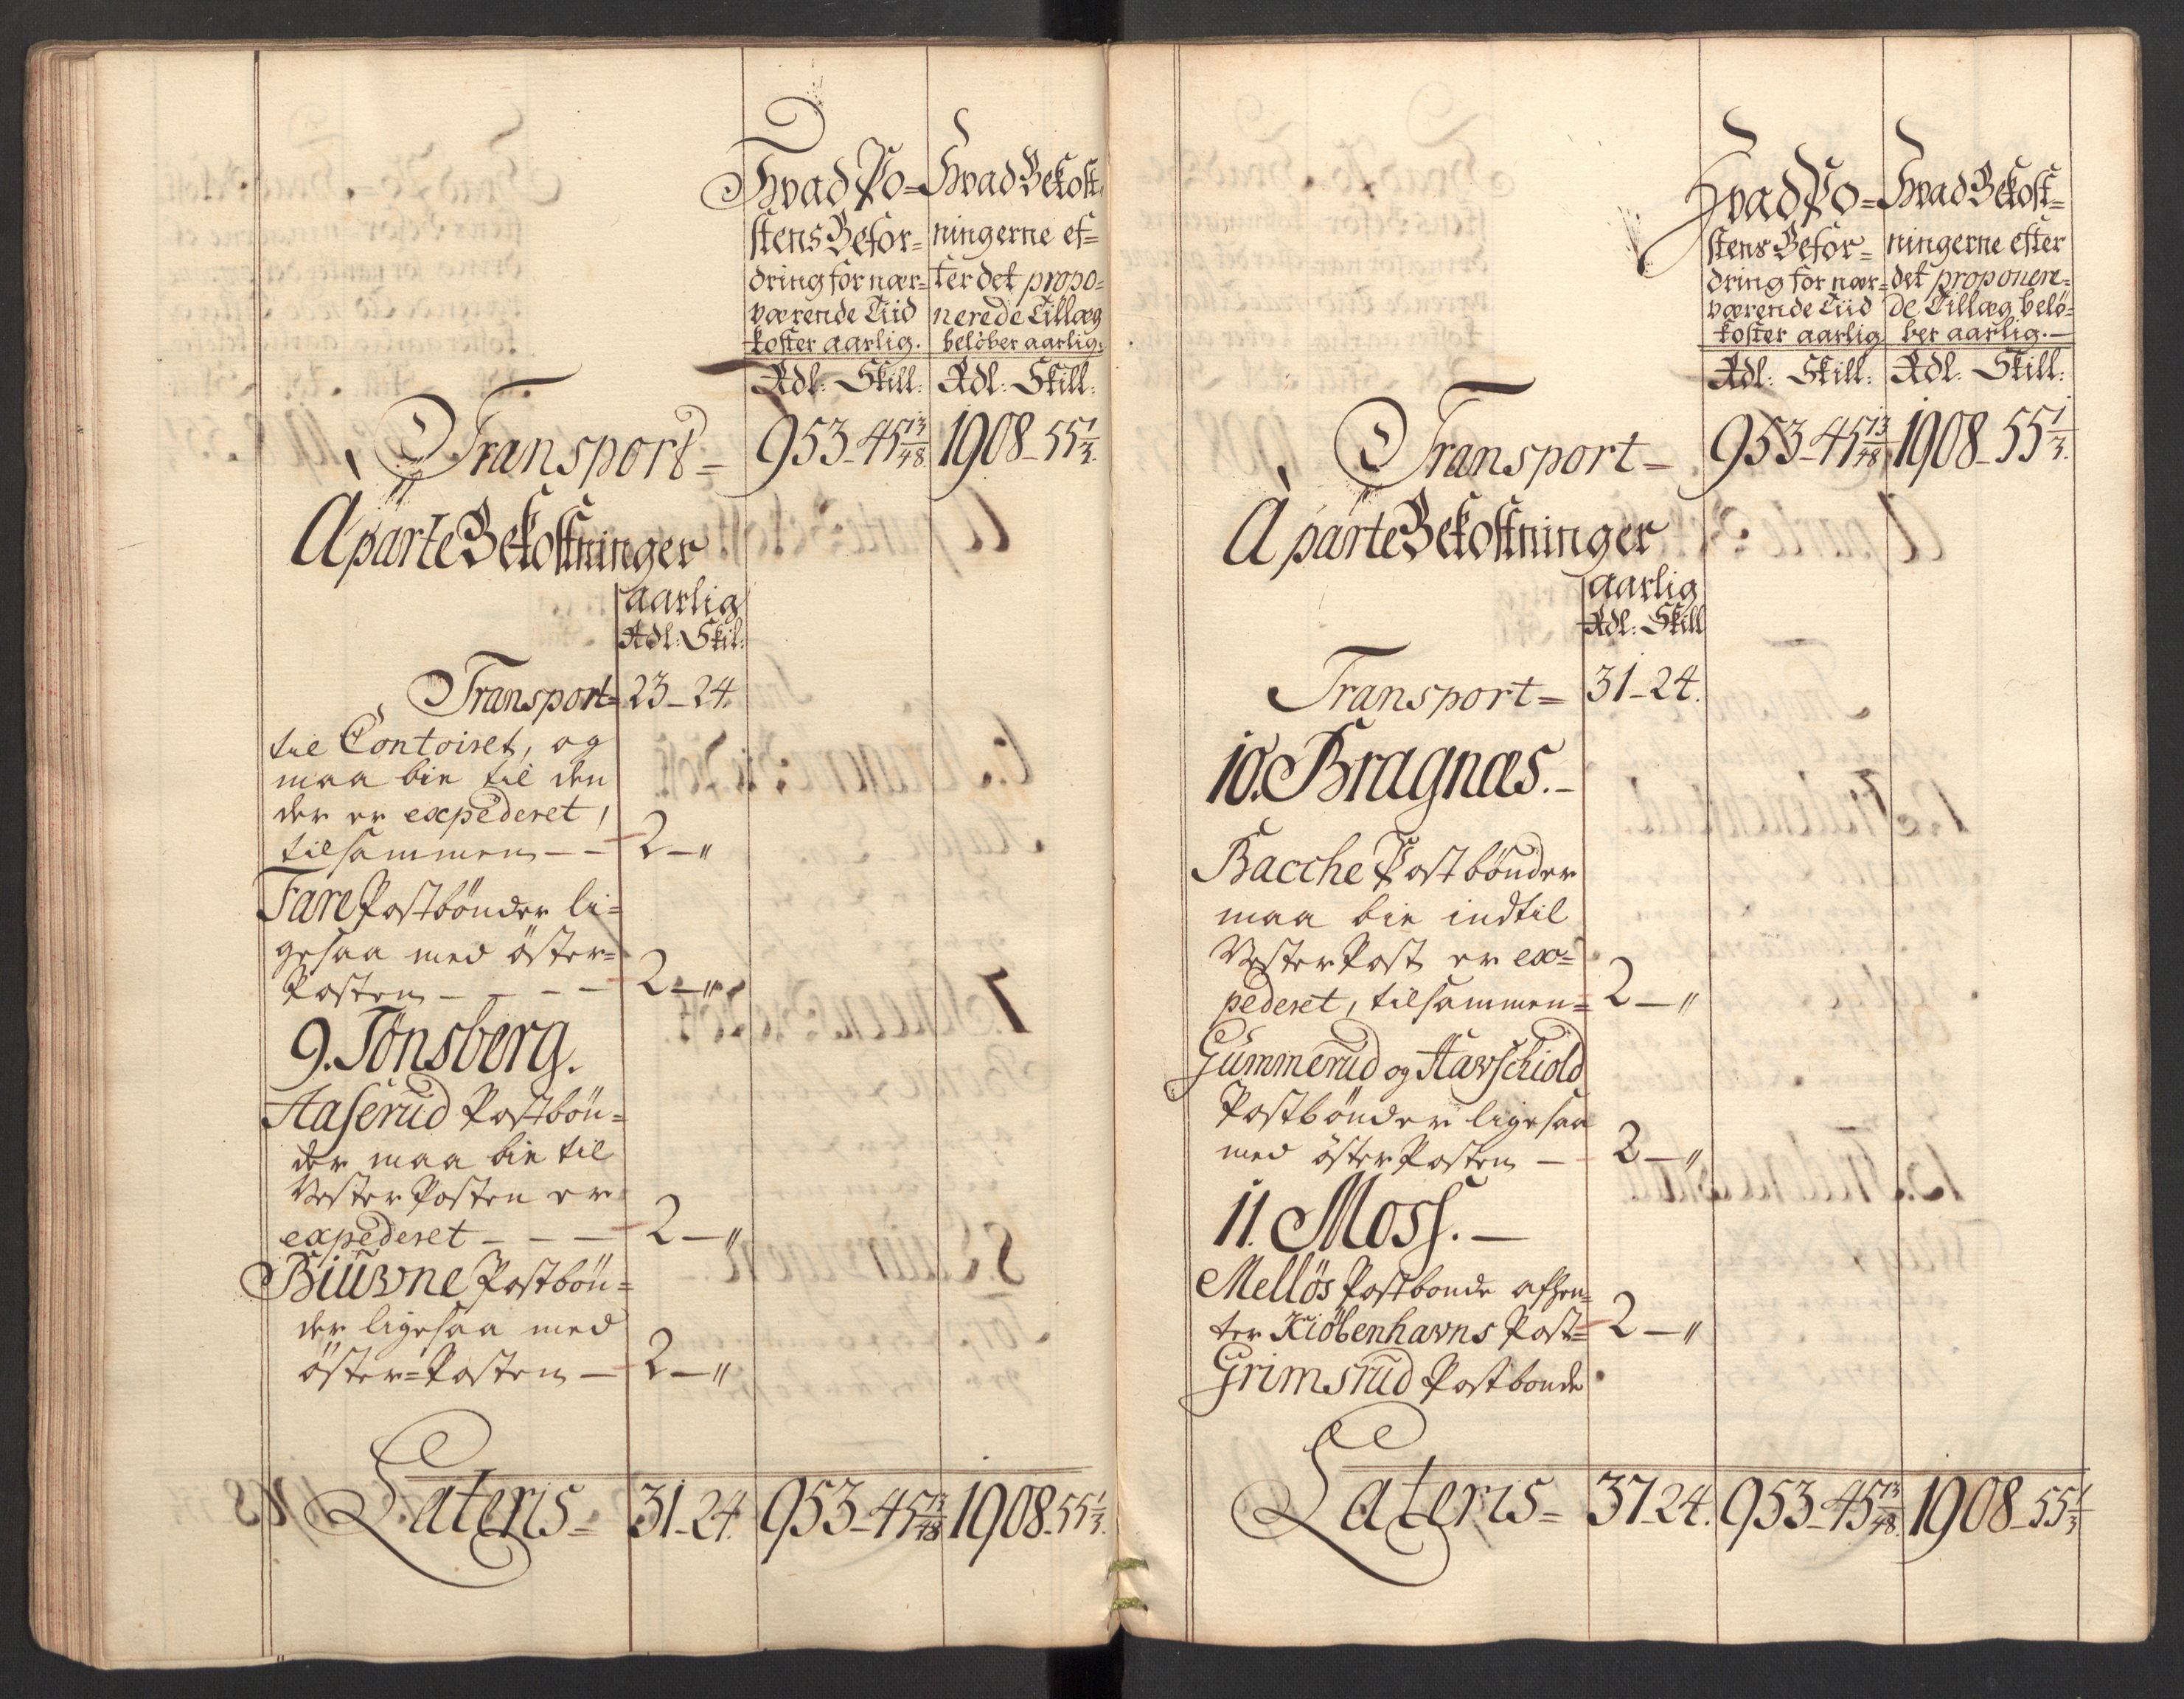 Hvad Po=
stens Befor=
dring for nær=
værende Tiid
koster aarlig.
Rdl: Skill:
Hvad Bekost=
ningerne ef=
ter det propo=
nerede Tillæg
beløber aarlig:
Rdl: Skill:
Transport= 953-45 13/48 1908-55 1/3.
Àparte Bekostninger
aarlig
Rdl: Skil:
Transport= 23-24.
til Contoiret, og
maa bie til den
der er expederet,
tilsammen - - 2-"
Fare Postbönder li=
gesaa med öster=
Posten - - - - 2-"
9. Tönsberg.
Aaserud Postbön=
der maa bie til
Vester Posten er
expederet - - - 2-"
Biúvne Postbön=
der ligesaa med
öster=Posten - 2-"
Lateris= 31-24. 953-45 13/48 1908-55 1/3.
Hvad Po=
stens Befor=
dring for nær=
værende Tiid
koster aarlig
Rdl: Skill:
Hvad Bekost=
ningerne efter
det proponere=
de Tillæg belö=
ber aarlig.-
Rdl: Skill:
Transport= 953-45 13/48 1908-55 1/3.
À parte Bekostninger
aarlig
Rdl: Skill
Transport= 31-24.
10. Bragnæs.-
Bacche Postbönder
maa bie indtil
Vester Post er ex=
pederet, tilsammen= 2-"
Gummerud og Havschiold
Postbönder ligesaa
med öster Posten - 2-"
11. Moss.-
Mellös Postbonde afhen=
ter Kiöbenhavns Post= 2-"
Grimsrud Postbonde
Lateris= 37-24. 953-45 13/48. 1908-55 1/3